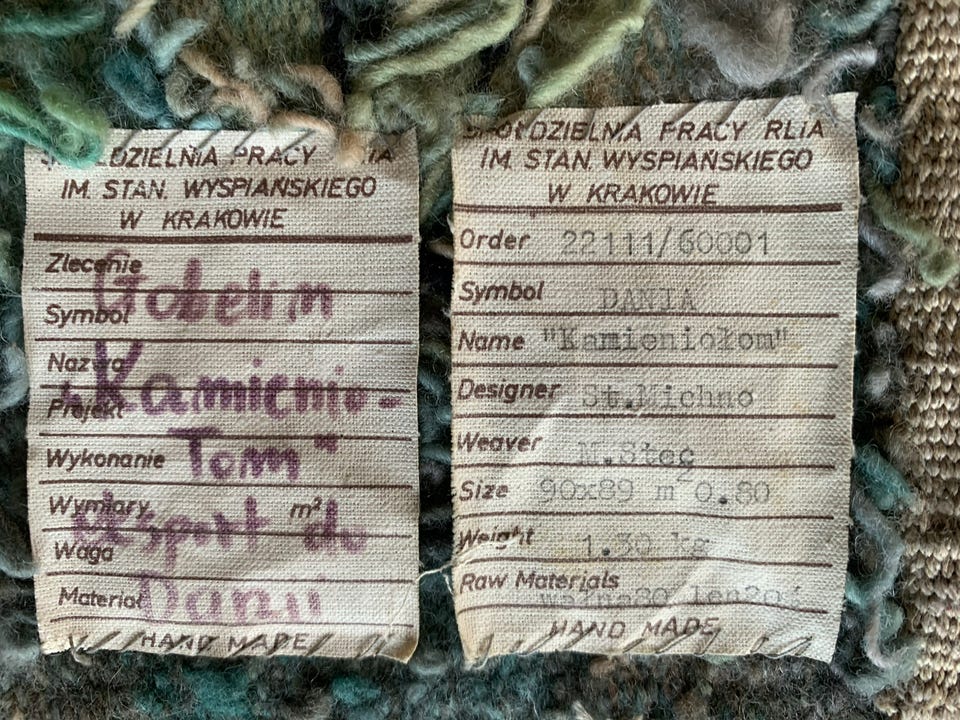 PRACY
IM. STAN. WYSPIAŃSKIEGO
W KRAKOWIE
Zlecenie
Gobelin
Symbol
Nazwa
"Kamienio-
Projekt
Wykonanie
łom"
Wymiary m²
eksport do
Waga
Materiał
Danii
HAND MADE
SPÓŁDZIELNIA PRACY RLiA
IM. STAN. WYSPIAŃSKIEGO
W KRAKOWIE
Order 22111/60001
Symbol DANIA
Name "Kamieniołom"
Designer St.Michno
Weaver M.Stoc
Size 90x89 m² 0.80
Weight 1.30 kg
Raw Materials
HAND MADE